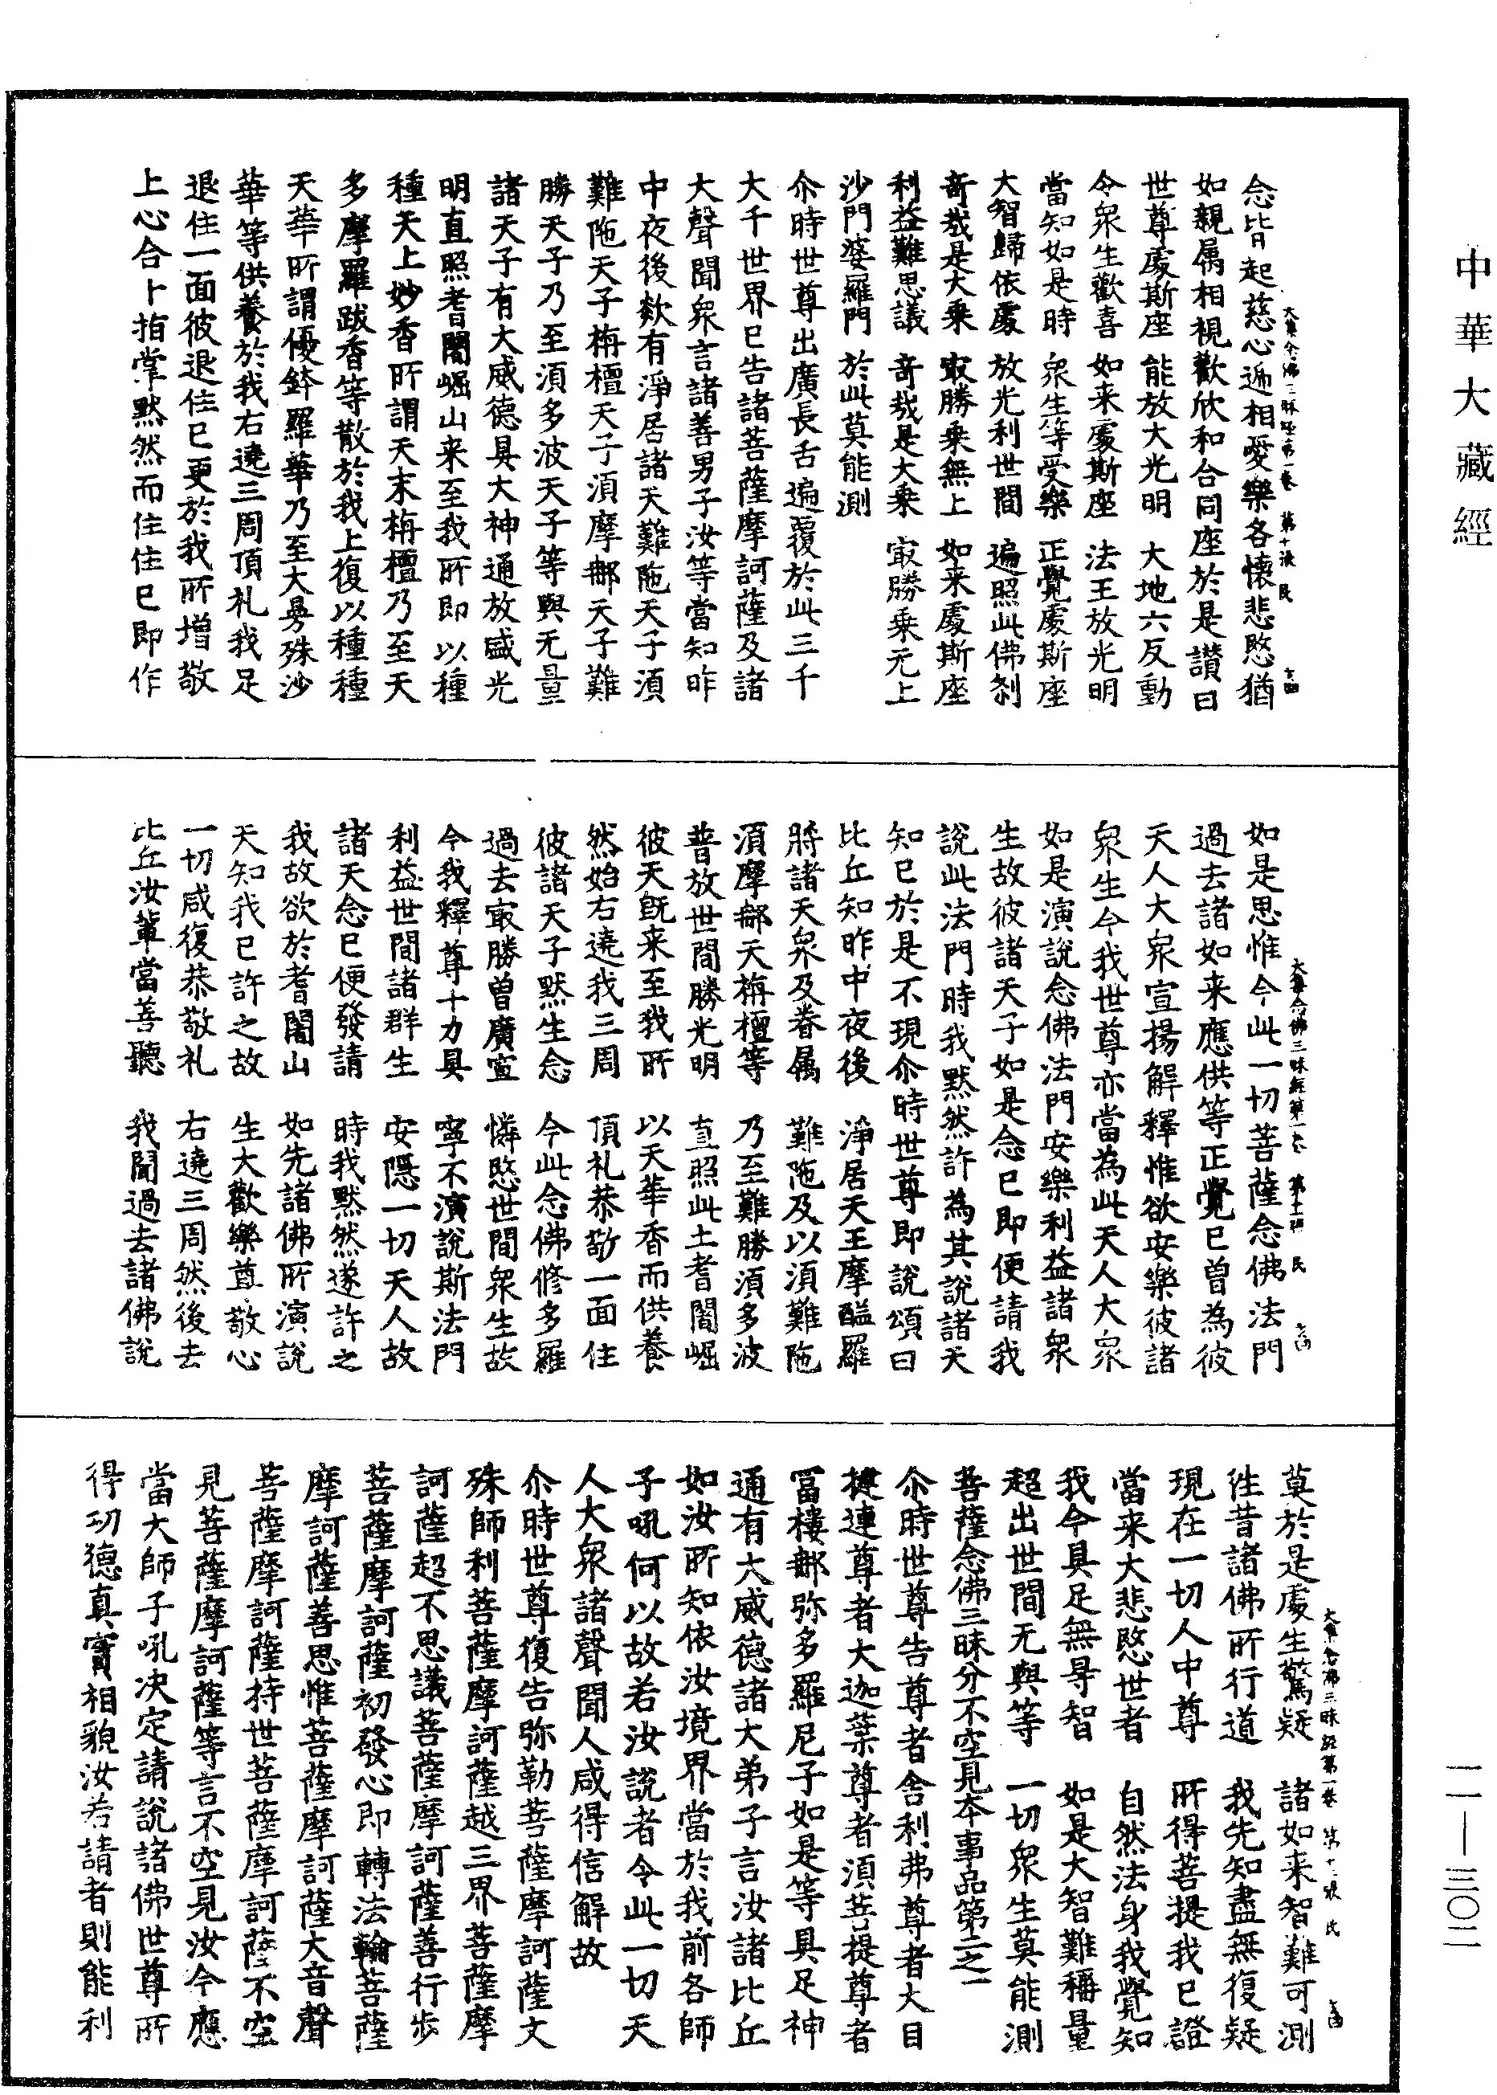 中華大藏經
念皆起慈心遞相愛樂各懷悲愍猶
如親属相視歡欣和合同座於是讃曰
世尊處斯座 能放大光明 大地六反動
令衆生歡喜 如来處斯座 法王放光明
當知如是時 衆生等受樂 正覺處斯座
大智歸依處 放光利世間 遍照此佛刹
奇哉是大乗 冣勝乗無上 如来處斯座
利益難思議 奇哉是大乗 冣勝乗无上
沙門婆羅門 於此莫能測
尒時世尊出廣長舌遍覆於此三千
大千世界已告諸菩薩摩訶薩及諸
大聲聞衆言諸善男子汝等當知昨
中夜後欻有淨居諸天難陁天子湏
難陁天子栴檀天子湏摩郍天子難
勝天子乃至湏多波天子等與无量
諸天子有大威德具大神通放盛光
明直照耆闍崛山来至我所即以種
種天上妙香所謂天末栴檀乃至天
多摩羅跋香等散於我上復以種種
天華所謂優鉢羅華乃至大曼殊沙
華等供養於我右遶三周頂礼我足
退住一面彼退住已更於我所增敬
上心合十指掌黙然而住住已即作
大集念佛三昧經第一卷 第十張 民
如是思惟今此一切菩薩念佛法門
過去諸如来應供等正覺已曾為彼
天人大衆宣揚解釋惟欲安樂彼諸
衆生今我世尊亦當為此天人大衆
如是演說念佛法門安樂利益諸衆
生故彼諸天子如是念已即便請我
說此法門時我黙然許為其說諸天
知已於是不現尒時世尊即說頌曰
比丘知昨中夜後 淨居天王摩醯羅
將諸天衆及眷属 難陁及以湏難陁
湏摩郍天栴檀等 乃至難勝湏多波
普放世間勝光明 直照此土耆闍崛
彼天旣来至我所 以天華香而供養
然始右遶我三周 頂礼恭敬一面住
彼諸天子黙生念 今此念佛修多羅
過去冣勝曾廣宣 憐愍世間衆生故
今我釋尊十力具 寧不演說斯法門
利益世間諸群生 安隱一切天人故
諸天念已便發請 時我黙然遂許之
我故欲於耆闍山 如先諸佛所演說
天知我已許之故 生大歡樂尊敬心
一切咸復恭敬礼 右遶三周然後去
比丘汝軰當善聽 我聞過去諸佛說
大集念佛三昧經第一卷 第十一張 民
莫於是處生驚疑 諸如来智難可測
往昔諸佛所行道 我先知盡無復疑
現在一切人中尊 所得菩提我已證
當来大悲愍世者 自然法身我覺知
我今具足無㝵智 如是大智難稱量
超出世間无與等 一切衆生莫能測
菩薩念佛三昧分不空見本事品第二之一
尒時世尊告尊者舍利弗尊者大目
揵連尊者大迦葉尊者湏菩提尊者
冨樓郍弥多羅尼子如是等具足神
通有大威德諸大弟子言汝諸比丘
如汝所知依汝境界當於我前各師
子吼何以故若汝說者令此一切天
人大衆諸聲聞人咸得信解故
尒時世尊復告弥勒菩薩摩訶薩文
殊師利菩薩摩訶薩越三界菩薩摩
訶薩超不思議菩薩摩訶薩善行步
菩薩摩訶薩初發心即轉法輪菩薩
摩訶薩善思惟菩薩摩訶薩大音聲
菩薩摩訶薩持世菩薩摩訶薩不空
見菩薩摩訶薩等言不空見汝今應
當大師子吼決定請說諸佛世尊所
得功德真實相貌汝若請者則能利
大集念佛三昧經第一卷 第十二張 民
一一—三〇二